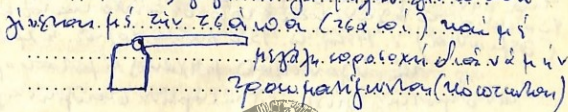 γίνεται μέ τήν τσάκα (τσάκί) καί μέ
μεγάλη προσοχή διά νά μήν
τραυματίζωνται (κόπτωνται)